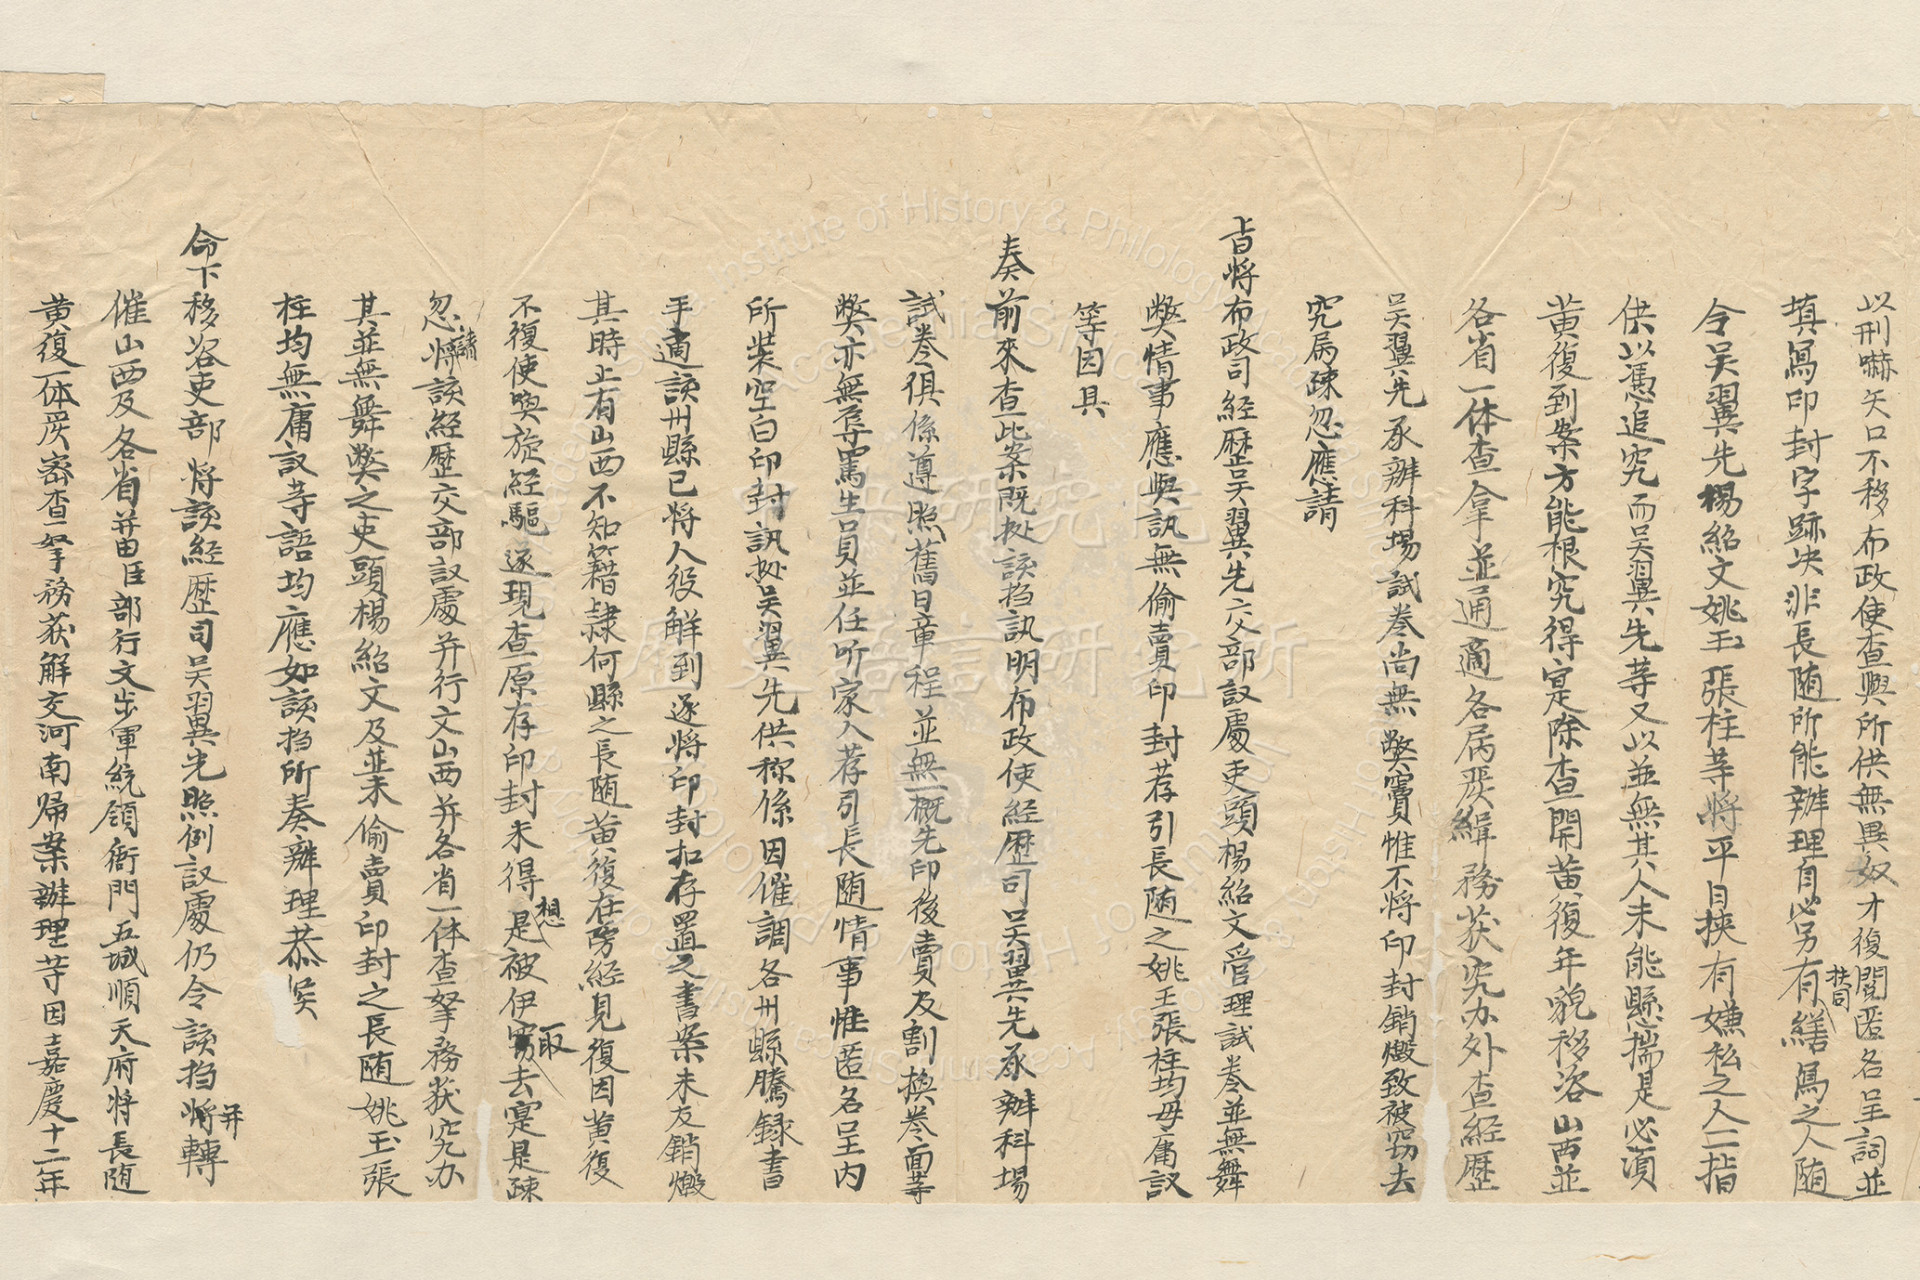 以刑嚇矢口不移布政使查與所供無異奴才復閱匿名呈詞並
填寫印封字跡决非長随所能辦理自必另有扶同繕寫之人随
令吴翼先楊紹文姚玉張柱等将平日挾有嫌私之人一一指
供以憑追究而吴翼先等又以並無其人未能懸揣是必須
黄復到案方能根究得寔除查開黄復年貌移咨山西並
各省一体查拿並通適各属嚴緝務获究办外查經歷
吴翼先承辦科塲試卷尚無獘竇惟不将印封銷燬致被窃去
究属疎忽應請
旨将布政司經歷吴翼先交部议處吏頭楊紹文管理試卷並無舞
獘情事應與訊無偷賣印封荐引長随之姚玉張柱均毋庸议
等因具
奏前來查此案既㨿該撫訊明布政使經歷司吴翼先承辦科塲
試卷俱係遵照舊日章程並無一概先印後賣及割換卷面等
獘亦無辱罵生員並任听家人荐引長随情事惟匿名呈内
所裝空白印封訊㨿吴翼先供称係因催調各州縣騰録書
手適該州縣已将人役解到遂将印封扣存置之書案未及銷燬
其時止有山西不知籍隷何縣之長随黄復在旁經見復因黄復
不復使喚旋經驅逐現查原存印封未得想是被伊窃取去寔是疎
忽請将該經歷交部议處并行文山西并各省一体查拏務获究办
其並無舞獘之吏頭楊紹文及並未偷賣印封之長随姚玉張
柱均無庸议等語均應如該撫所奏辦理恭俟
命下移咨吏部将該經歷司吴翼先照例议處仍令該撫并将轉
催山西及各省並由臣部行文步軍統領衙門五城順天府将長随
黄復一体嚴密查拏務获解交河南帰案辦理等因嘉慶十二年